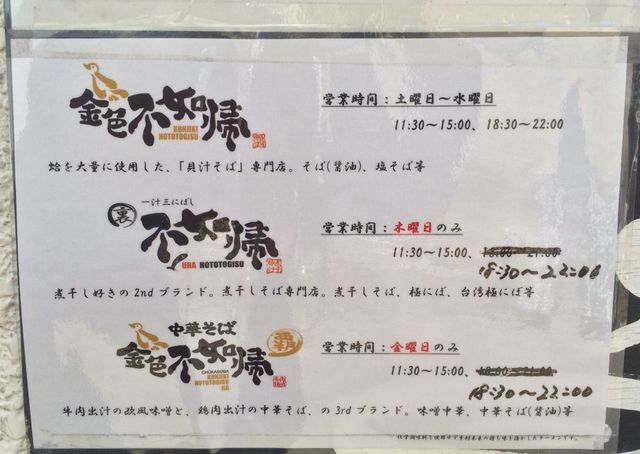 金色不如帰
KONJIKI
HOTOTOGISU
営業時間：土曜日～水曜日
11:30～15:00、18:30～22:00
蛤を大量に使用した、「貝汁そば」専門店。そば(醤油)、塩そば等
裏
一汁三にぼし
不如帰
URA HOTOTOGISU
営業時間：木曜日のみ
11:30～15:00、18:00～21:00
18:30～22:00
煮干し好きの2ndブランド。煮干しそば専門店。煮干しそば、極にば、台湾極にば等
中華そば
金色不如帰
覇
CHUKASOBA
KONJIKI
HOTOTOGISU
HA
営業時間：金曜日のみ
11:30～15:00、18:00～21:00
18:30～22:00
牛肉出汁の欧風味噌と、鶏肉出汁の中華そば、の3rdブランド。味噌中華、中華そば(醤油)等